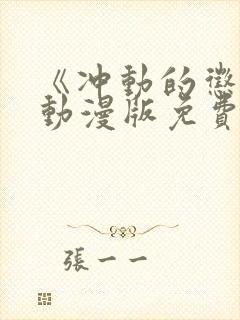 《冲動的懲
動漫版免費
張一一